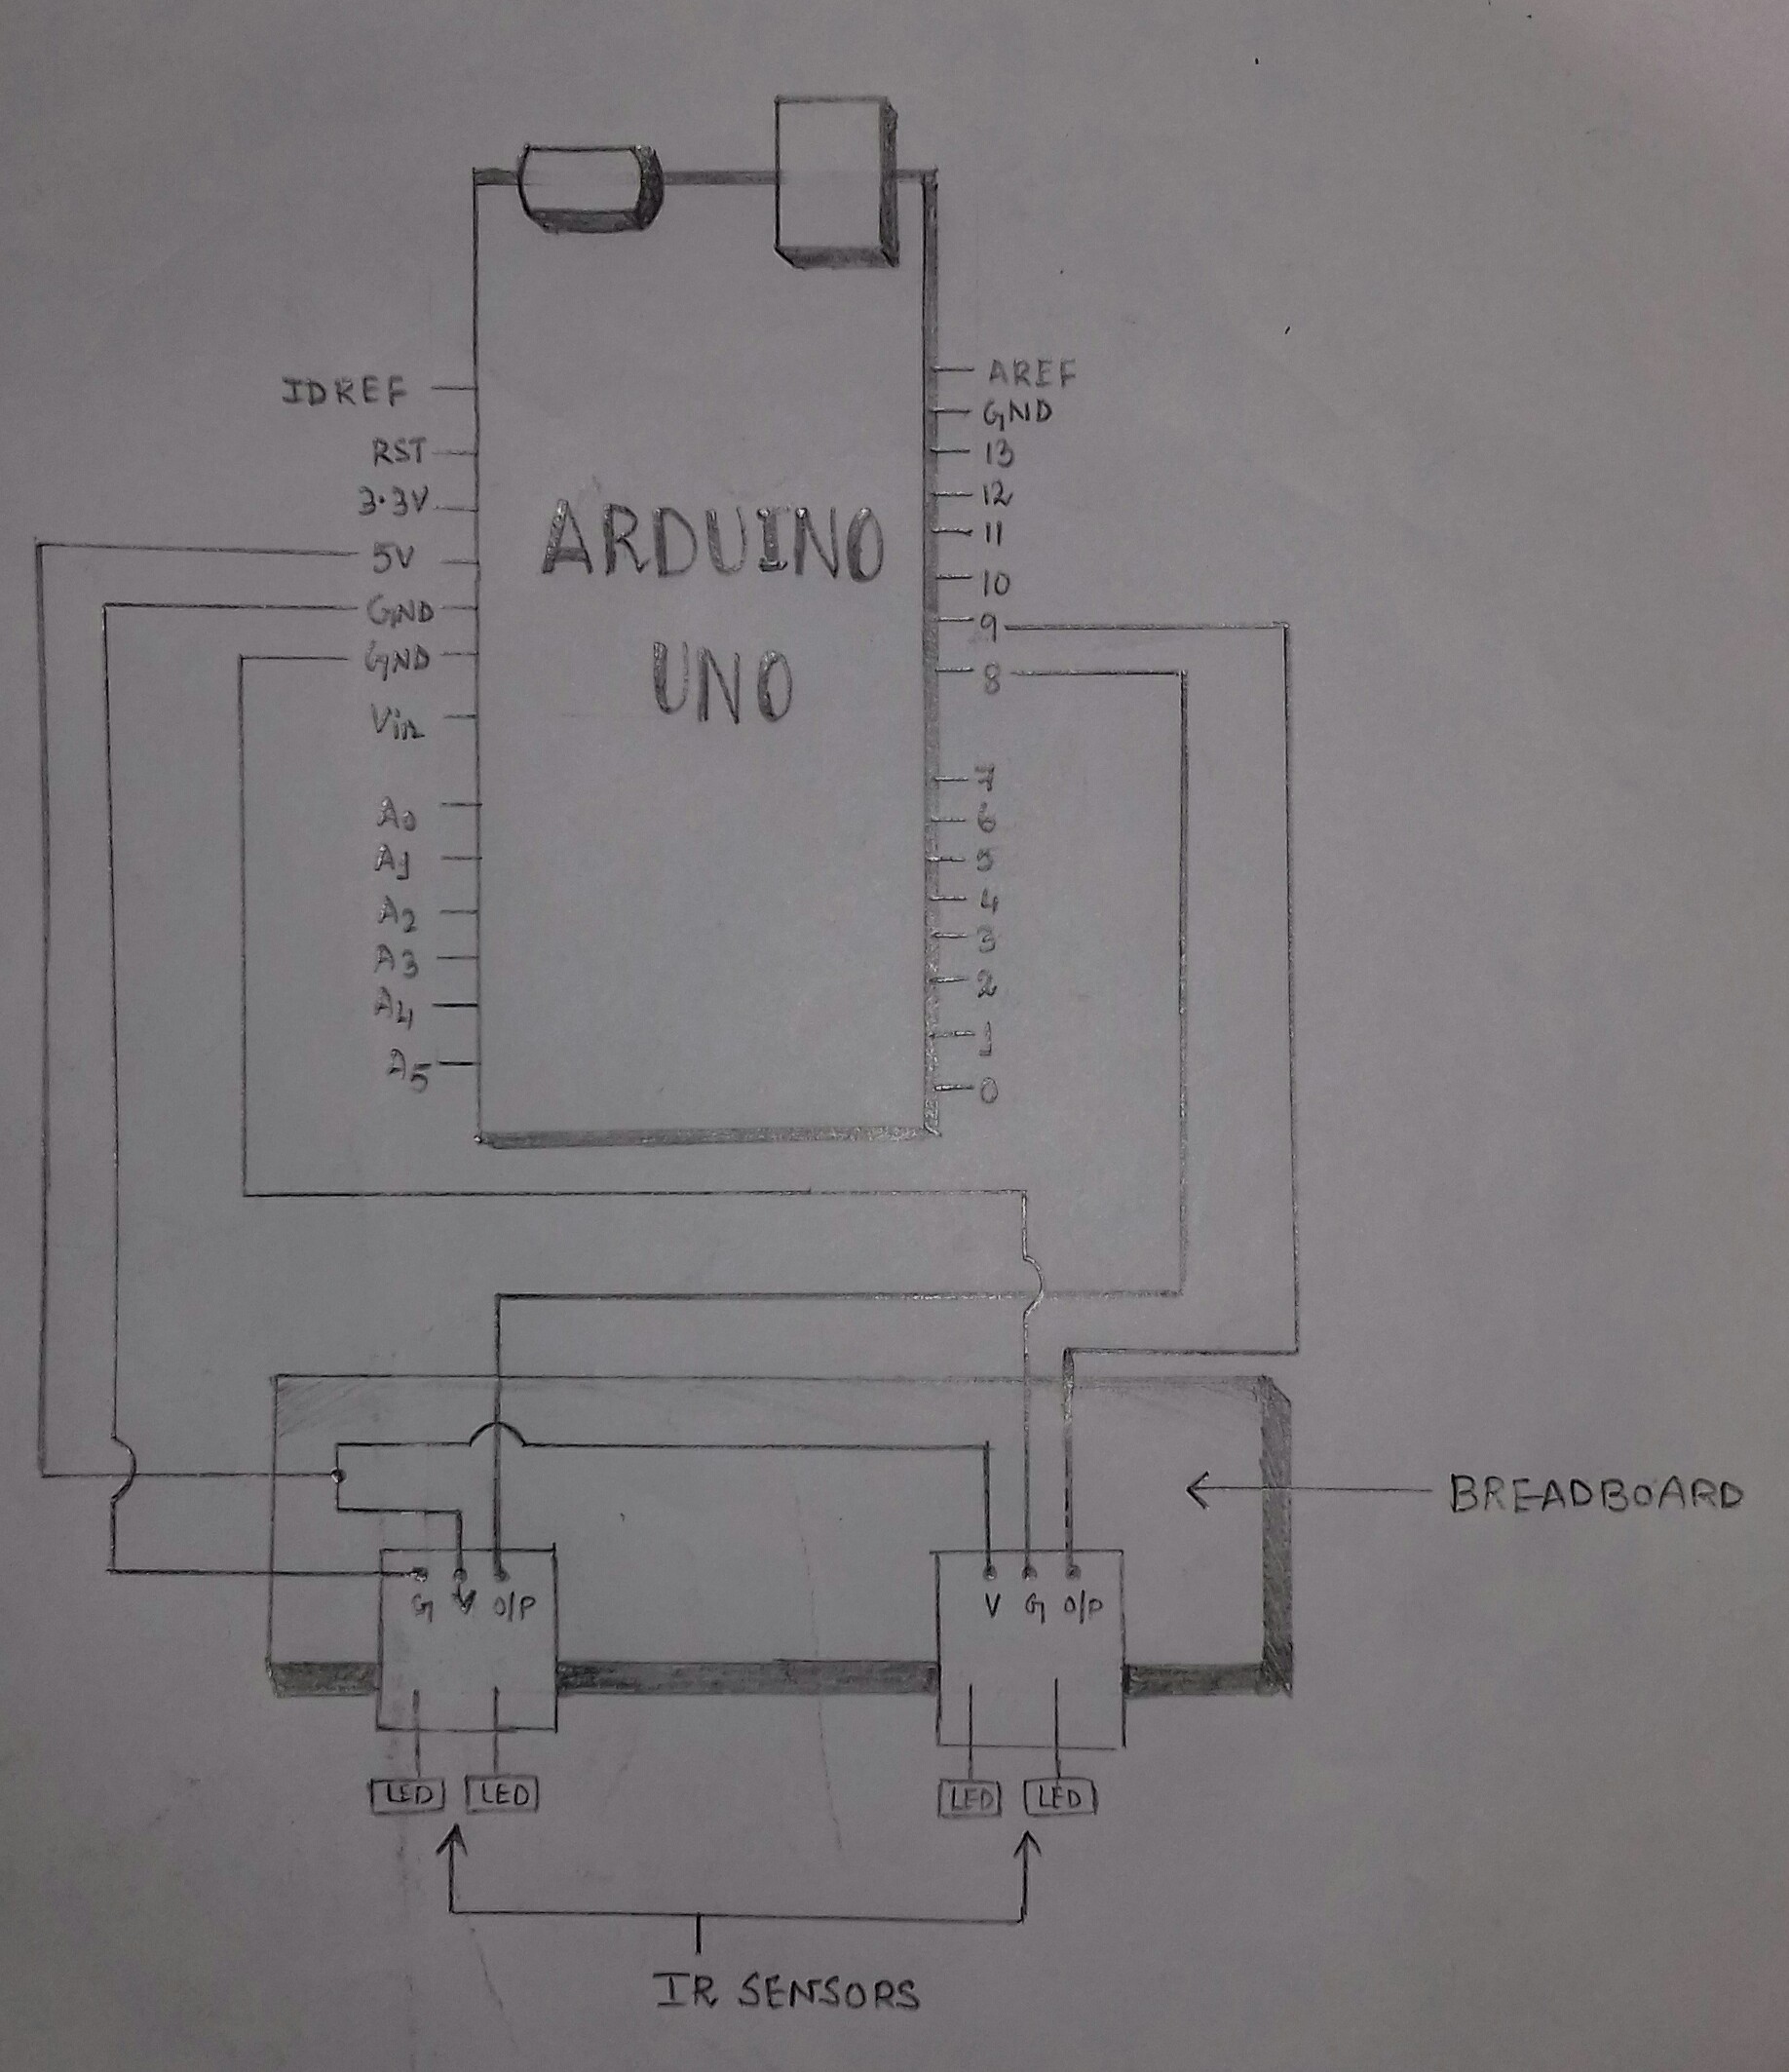 IDREF
RST
3.3V
5V
GND
GND
Vin
A0
A1
A2
A3
A4
A5
ARDUINO
UNO
AREF
GND
13
12
11
10
9
8
7
6
5
4
3
2
1
0
BREADBOARD
G V O/P
V G O/P
LED LED
LED LED
IR SENSORS